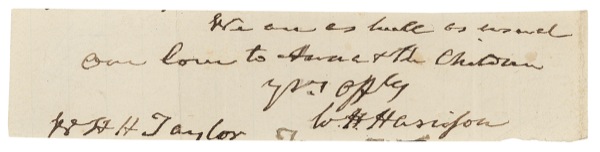 We are as well as usual
our love to Anna & the Children
yrs affly
W. H. Harrison
W H H Taylor